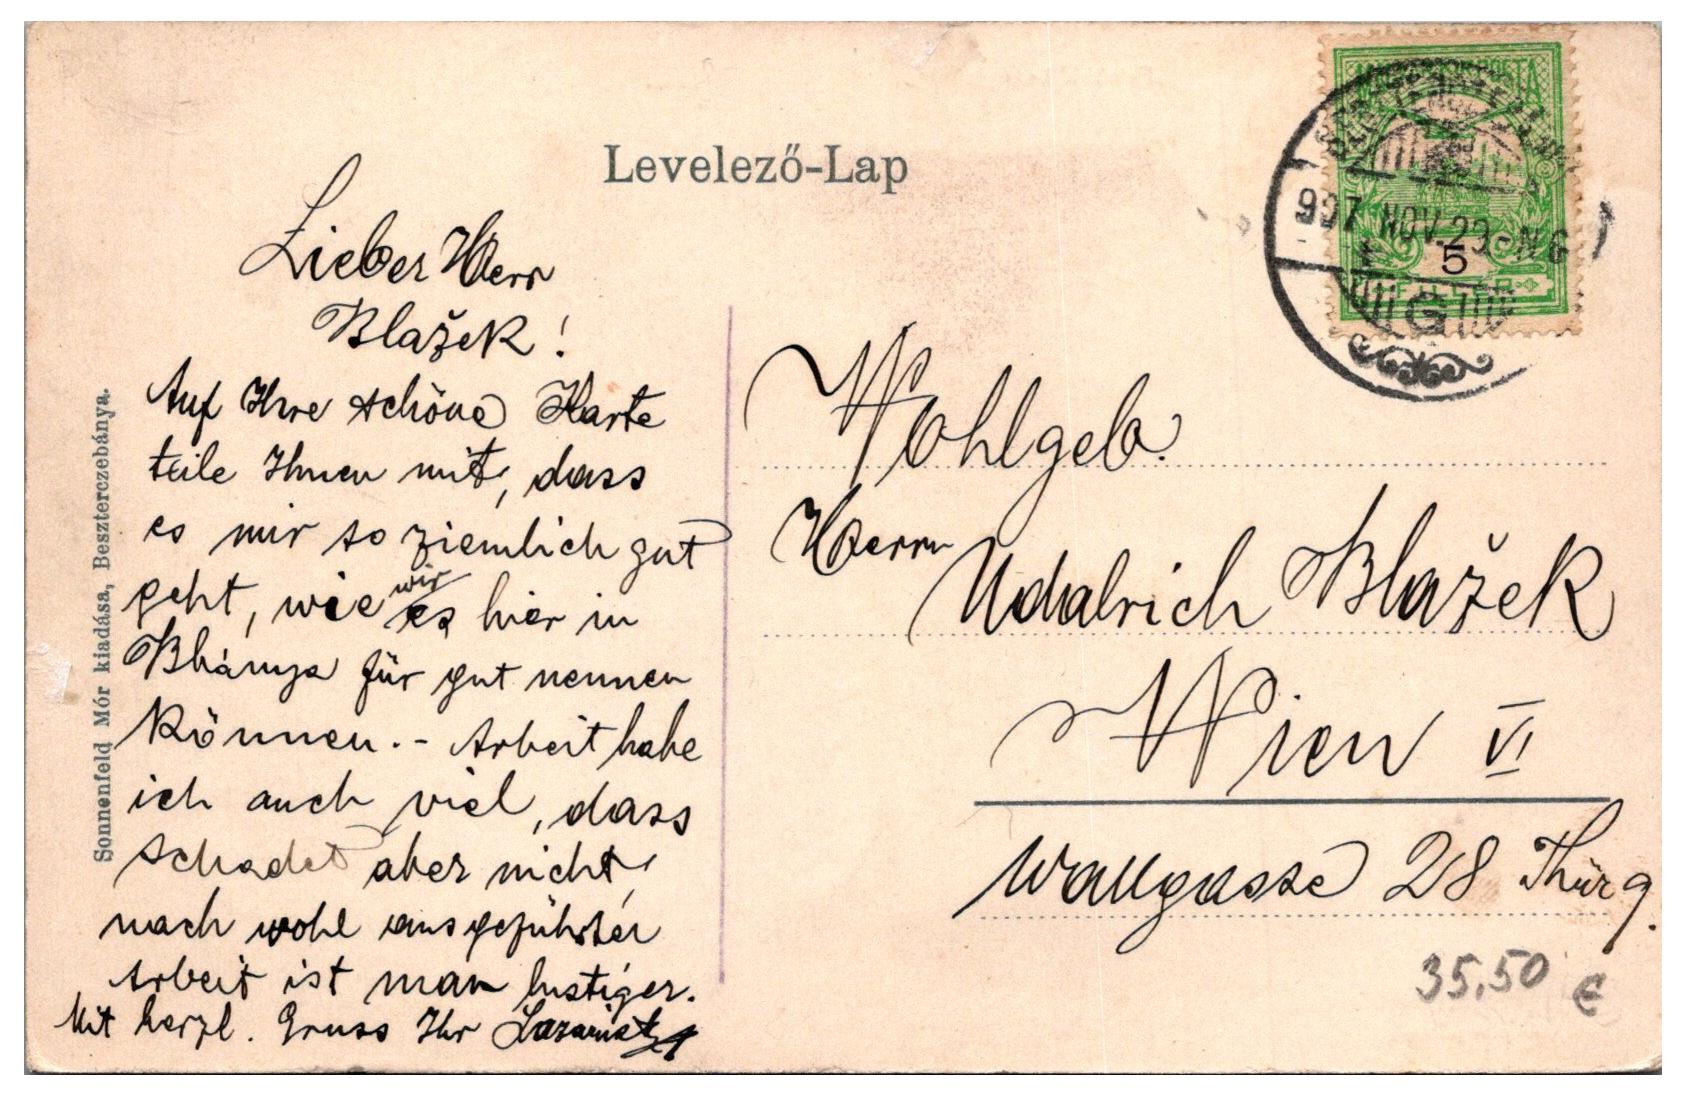 Levelező-Lap
Lieber Herr
Blažek!
Auf Ihre schöne Karte
teile Ihnen mit, dass
es mir so ziemlich gut
geht, wie wir es hier in
Bbánya für gut nennen
können. - Arbeit habe
ich auch viel, dass
schadet aber nicht,
nach wohl ausgeführter
Arbeit ist man lustiger.
Mit herzl. Gruss Ihr
Sonnenfeld Mór kiadása, Beszterczebánya.
907 NOV. 29 - N 6
5
FILLÉR
G
Wohlgeb.
Herrn
Udalrich Blažek
Wien VI
Wallgasse 28 Thür 9.
35,50 €